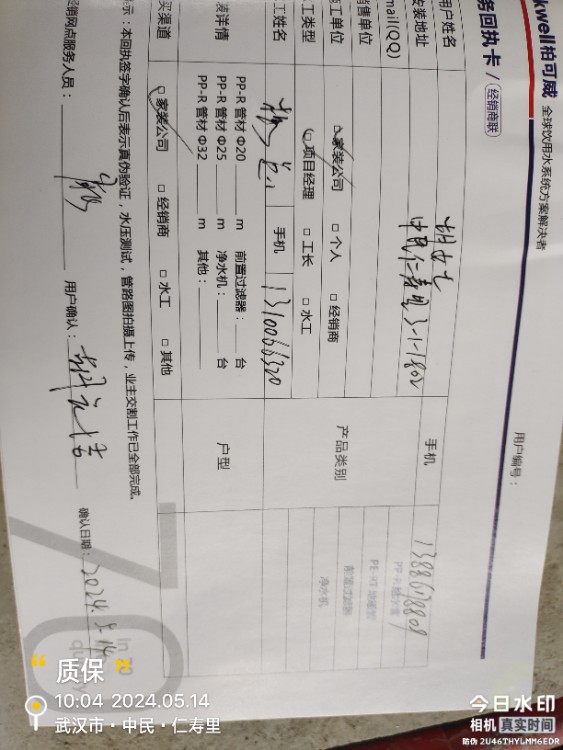 kwell柏可威 全球饮用水系统方案解决者
务回执卡 / 经销商联
用户编号：
用户姓名 胡女士 手机
安装地址 中民仁寿里3-1-1802
mail(QQ)
销售单位 产品类别
工单位 家装公司 个人 经销商
工类型 项目经理 工长 水工
工姓名 手机 1310066320
装详情 PP-R 管材 Φ20 m 前置过滤器： 台
PP-R 管材 Φ25 m 净水机： 台
PP-R 管材 Φ32 m 其他：
户型
PP-R 给水管
前置过滤器
净水机
买渠道 家装公司 经销商 水工 其他
示：本回执签字确认后表示真伪验证，水压测试，管路图拍摄上传，业主交割工作已全部完成。
经销网点服务人员： 用户确认： 确认日期：2024.5.14
质保
10:04 2024.05.14
武汉市·中民·仁寿里
今日水印
相机 真实时间
防伪 2U46THYLMM6EDR